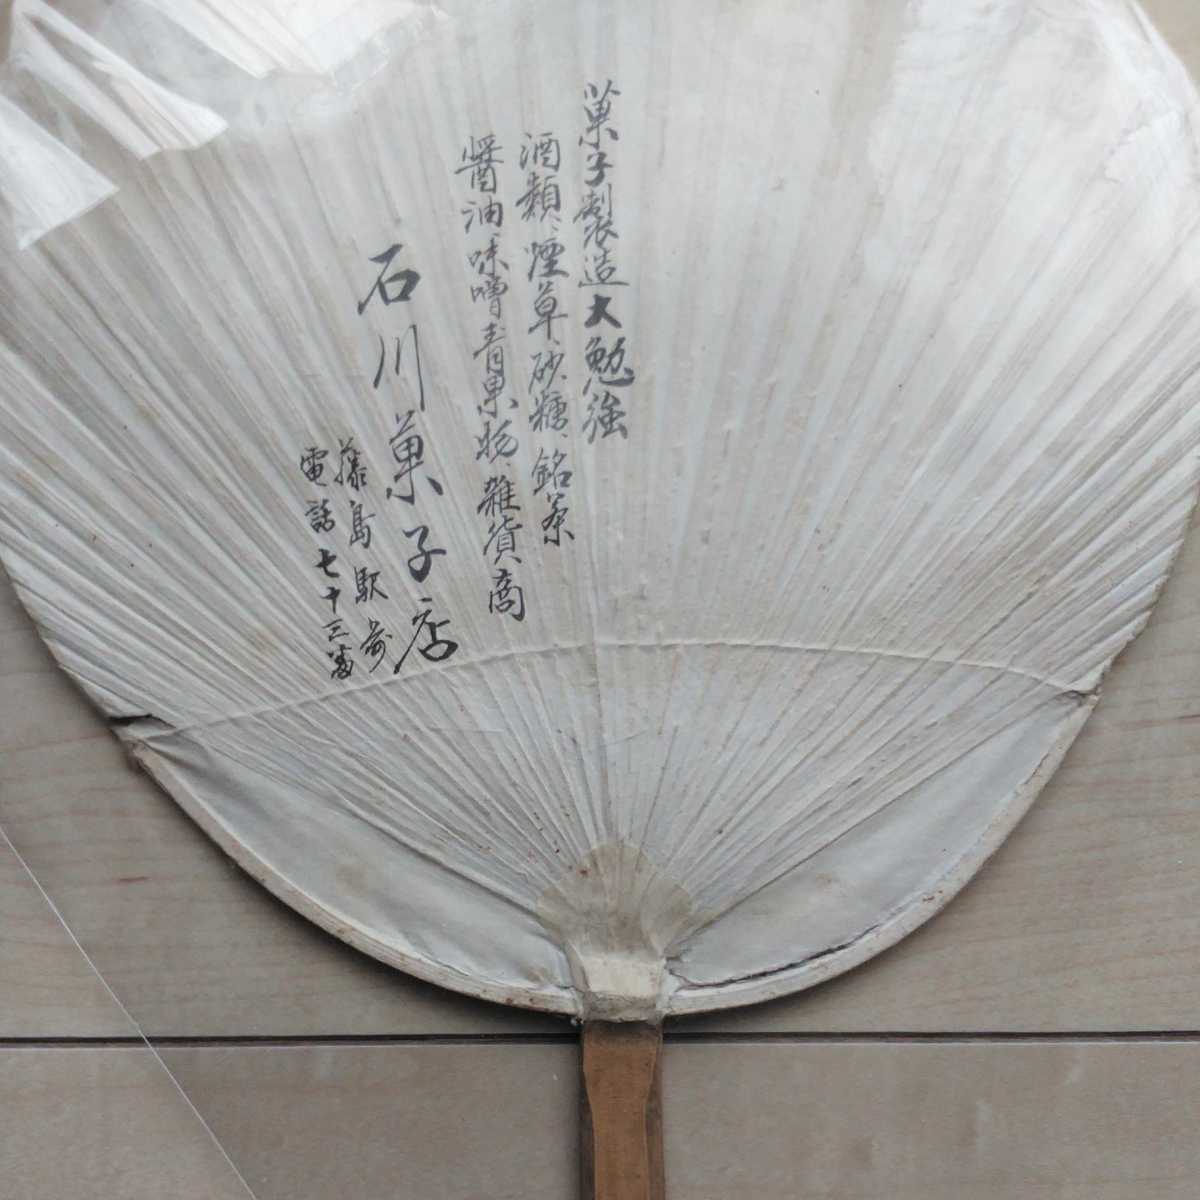 菓子製造大勉強
酒類、煙草、砂糖、銘茶
醤油味噌青果物、雑貨商
石川菓子店
藤島駅前
電話七十三番